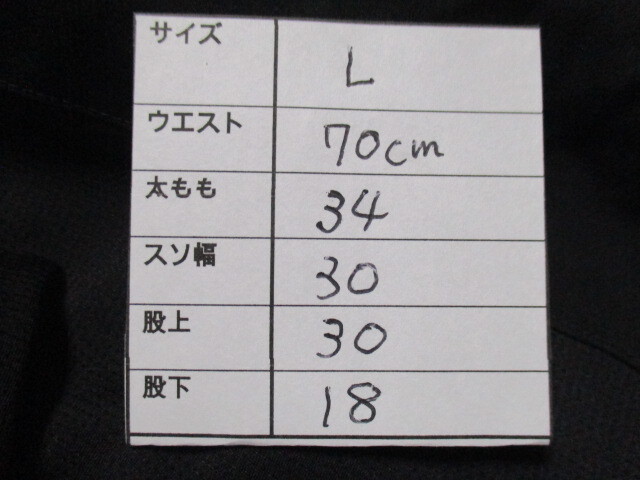 サイズ L
ウエスト 70cm
太もも 34
スソ幅 30
股上 30
股下 18